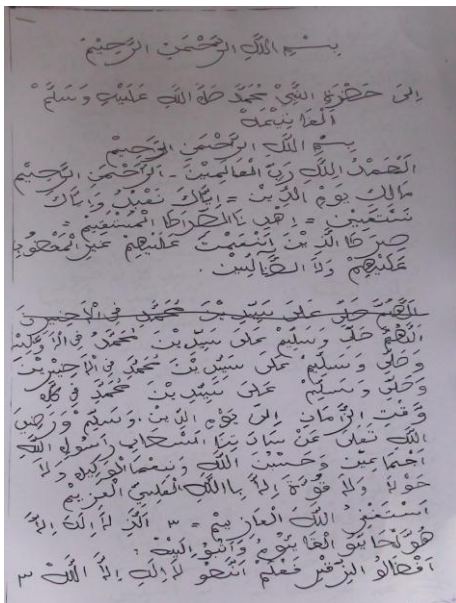 بِسْمِ اللّٰهِ الرَّحْمٰنِ الرَّحِيْمِ
اِلَى حَضْرَةِ النَّبِيْ مُحَمَّدْ صَلَّ اللّٰهُ عَلَيْهِ وَسَلَّمْ
اَلْفَا تِيْحَهْ
بِسْمِ اللّٰهِ الرَّحْمٰنِ الرَّحِيْمِ
اَلْحَمْدُ اللّٰهِ رَبِّ الْعَالَمِيْنَ - اَلرَّحْمٰنِ الرَّحِيْمِ
مَالِكِ يَوْمِ الدِّيْنِ = اِيَّاكَ نَعْبُدُ وَاِيَّاكَ
نَسْتَعِيْنُ = اِهْدِ نَا الصِّرَاطَ الْمُسْتَقِيْمَ =
صِرَ طَا الَّذِ يْنَ اَنْعَمْتَ عَلَيْهِمْ غَيْرِ الْمَغْضُوْبِ
عَلَيْهِمْ وَلاَ الضَّالِّيْنَ .
اَللّٰهُمَّ صَلِّى عَلَى سَيِّدِ يْنَ مُحَمَّدٍ فِى الْاَخِيْرِيْنَ
اَللّٰهُمَّ صَلِّى وَسَلِّيْمْ عَلَى سَيِّدِ يْنَ مُحَمَّدٍ فِى الْاَ وَّلِيْنَ
وَصَلِّى وَسَلِّيْمْ عَلَى سَيِّدِ يْنَ مُحَمَّدٍ فِى الْاَ خِيْرِ يْنَ
وَصَلِّى وَسَلِّيْمْ عَلَى سَيِّدِ يْنَ مُحَمَّدٍ فِى كُلِّ
وَقْتِ الزَّمَانِ اِلَى يَوْمِ الدِّيْنِ . وَسَلِّيْمْ وَرَضِيَ
اللّٰهُ تَعَلَى عَنْ سَادَ تِنَا اَصْحَابِ رَسُوْلِ اللّٰهِ
اَجْمَا عِيْنَ وَحَسْبُنَ اللّٰهُ وَنِعْمَا الْوَكِيْلْ وَلاَ
حَوْلَ وَلاَ قُوَّةَ اِلاَّ بِااللّٰهِ الْعَلِيِّ الْعَزِ يْمِ
اَسْتَغْفِرُ اللّٰهَ الْعَازِ يْمْ = ٣ اَلَّذِ لَا اِلٰهَ اِلاَّ
هُوَ لْحَا يُّوْ الْقَا يُّوْمُ وَاَتُوْبُ اِلَيْهِ :
اَفْضَالُوْ الذِّ كْرِ فَعْلَمْ اَنَّهُوْ لَا اِلٰهَ اِلاَّ اللّٰهْ ٣